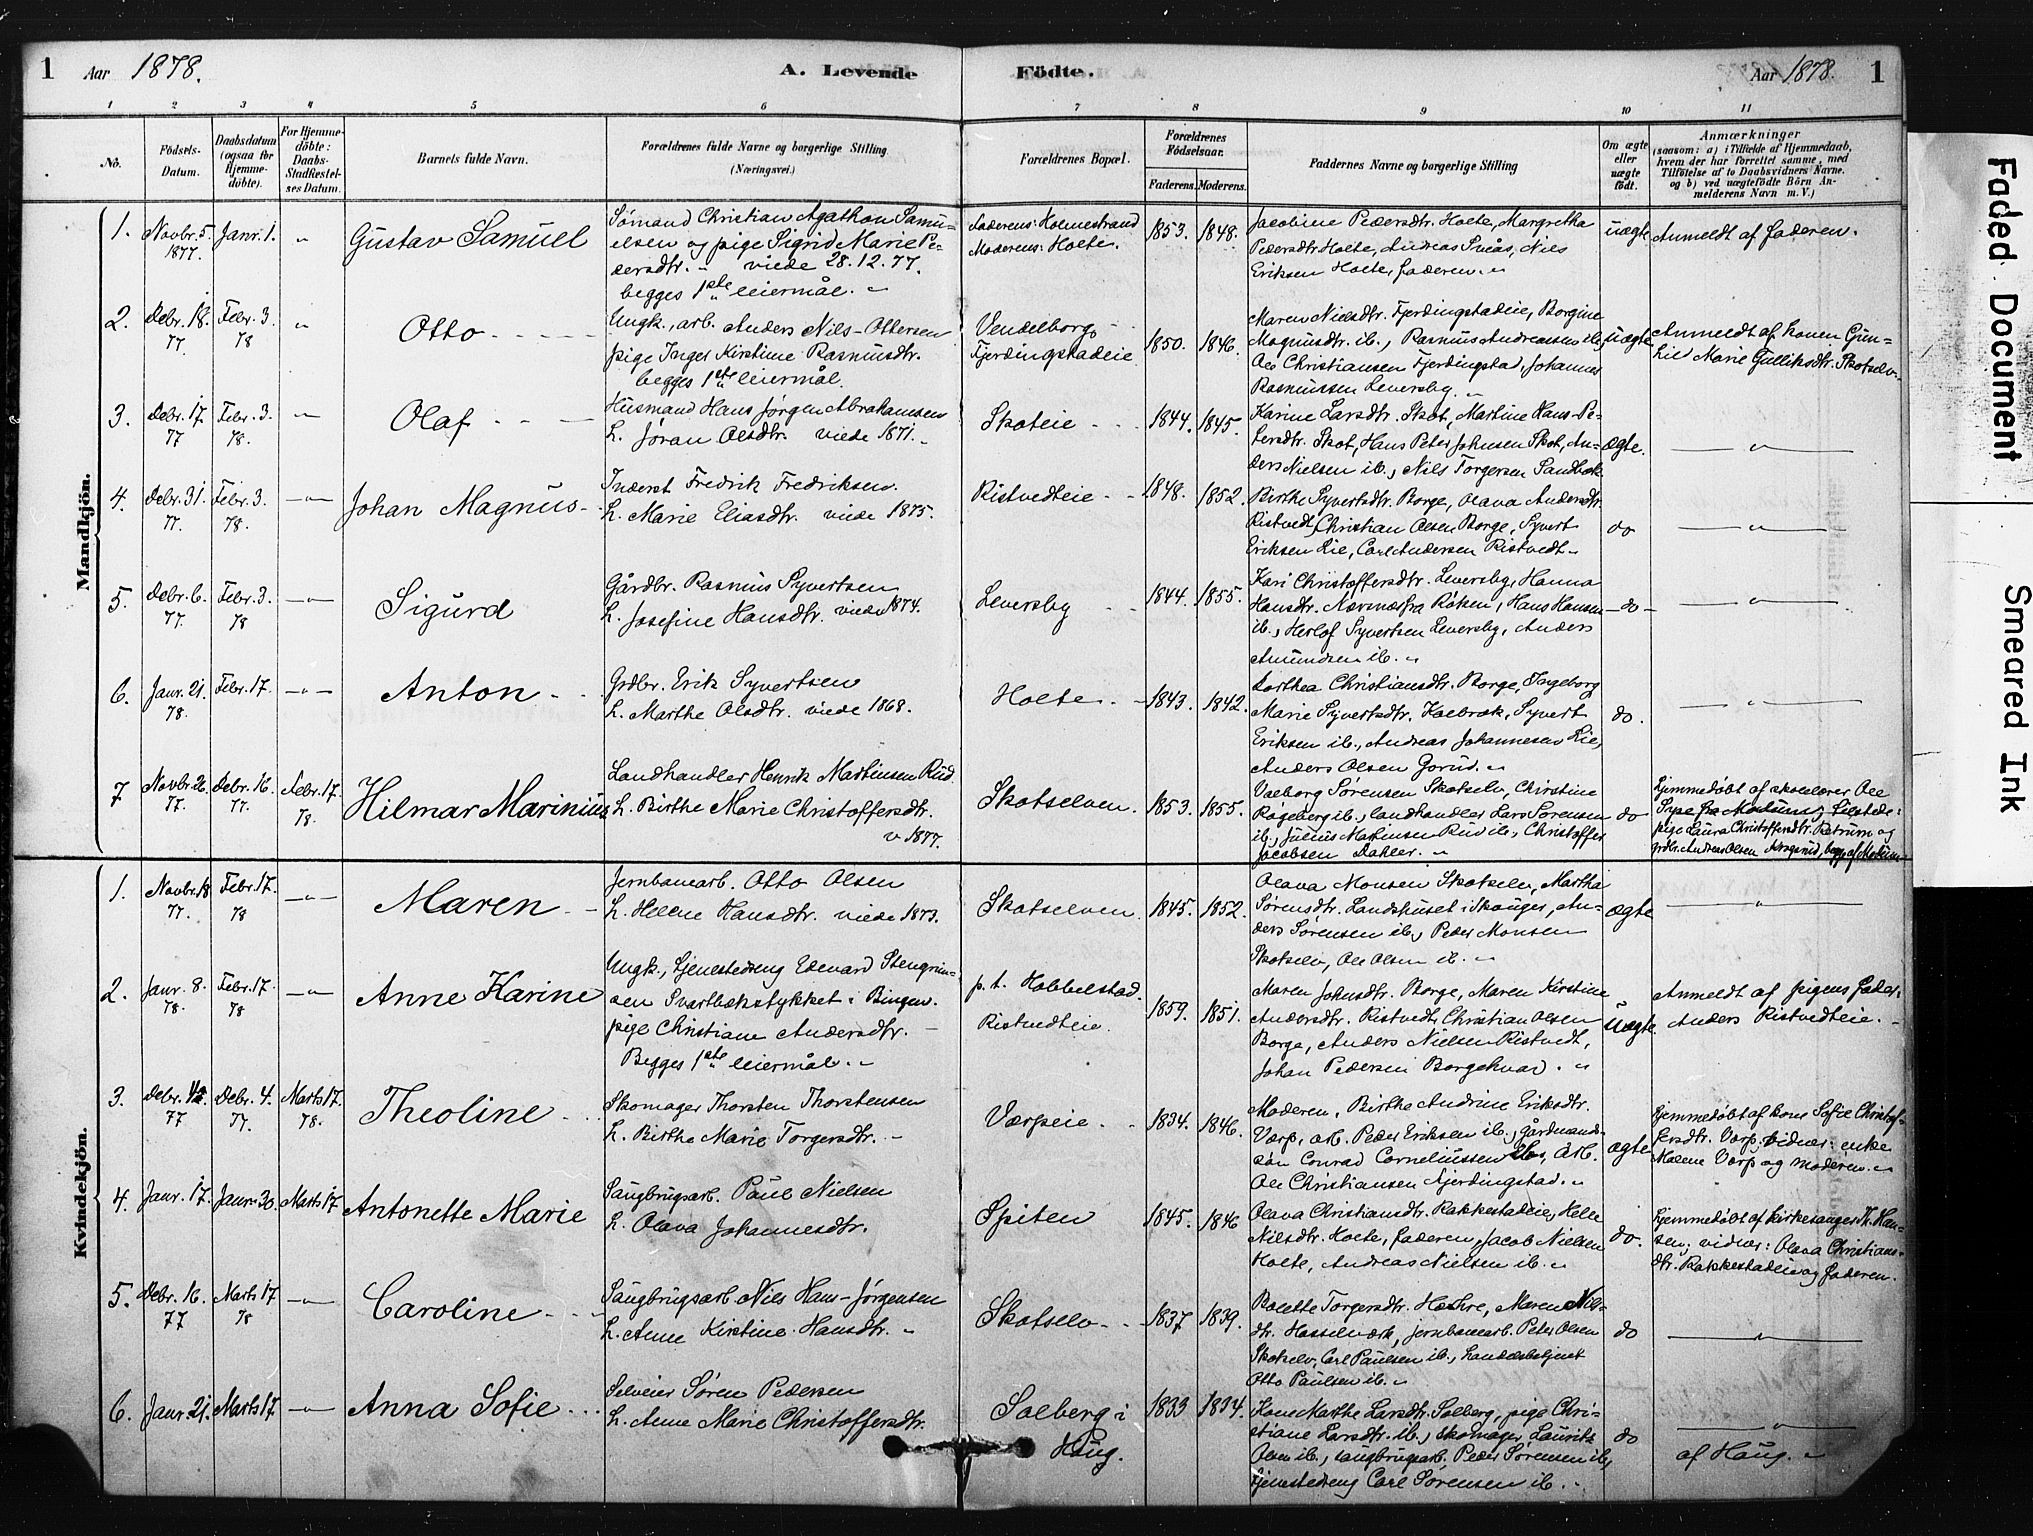 1 Aar 1878. A. Levende Födte. Aar 1878. 1
1 2 3 4 5 6 7 8 9 10 11
No.
Födsels-Datum.
Daabsdatum (ogsaa for Hjemme-döbte).
For Hjemme-döbte: Daabs-Stadfæstel-ses Datum.
Barnets fulde Navn.
Forældrenes fulde Navne og borgerlige Stilling
(Næringsvei.)
Forældrenes Bopæl.
Forældrenes Födselsaar.
Faderens. Moderens.
Faddernes Navne og borgerlige Stilling
Om ægte eller uægte födt.
Anmærkninger
(saasom: a) i Tilfælde af Hjemmedaab, hvem der har forrettet samme, med Tilföielse af to Daabsvidners Navne. og b) ved uægtefödte Börn An-melderens Navn m. V.)
Mandkjön.
1. Novbr. 5. 1877. Janr. 1. " Gustav Samuel
Sømand Christian Agathon Samu-
elsen og pige Sigrid Marie Pe-
dersdtr. - viede 28.12.77.
begges 1ste leiermål.
Faderens: Holmestrand
Moderens: Holte.
1853. 1848.
Jacobine Pedersdtr. Holte, Margretha
Pedersdtr. Holte, Andreas Snåås, Nils
Eriksen Holte, faderen.
uægte
Anmeldt af faderen.
2. Debr. 18. 77 Febr. 3. 78 " Otto
Ungk., arb. Anders Nils-Ottersen
pige Inger Kirstine Rasmusdtr.
begges 1ste leiermål.
Vendelborg
Fjerdingstadeie
1850. 1846.
Maren Nielsdtr. Fjerdingstadeie, Borgine
Magnusdtr. ib., Rasmus Andreassen ib.,
Ole Christiansen Fjerdingstad, Johannes
Rasmussen Leversby.
uægte
Anmeldt af konen Gun-
hil Marie Gulliksdtr. Skotselv.
3. Debr. 17. 77 Febr. 3. 78. Olaf
Husmand Hans Jørgen Abrahamsen
h. Jøran Olsdtr. viede 1871.
Skoteie
1844. 1845.
Karine Larsdtr. Skot, Martine Hans-Pe-
tersdtr. Skot, Hans Peter Johnsen Skot, An-
ders Nielsen ib., Nils Torgersen Sandbæk
ægte.
4. Debr. 31. 77. Febr. 3. 78. Johan Magnus
Inderst Fredrik Fredriksen.
h. Marie Eliasdtr. viede 1875.
Ristvedteie
1848. 1852.
Birthe Syvertsdtr. Borge, Olava Andersdtr.
Ristvedt, Christian Olsen Borge, Syvert
Eriksen Lie, Carl Andersen Ristvedt
do
5. Debr. 6. 77. Febr. 3. 78 Sigurd
Gårdbr. Rasmus Syvertsen
h. Josefine Hansdtr. viede 1874.
Leversby
1844. 1855.
Kari Christoffersdtr. Leversby, Hanna
Hansdtr. Nærsnæs fra Røken, Hans Hansen
ib., Herlof Syvertsen Leversby, Anders
Amundsen ib.
do
6. Janr. 21. 78. Febr. 17. Anton
Grdbr. Erik Syvertsen
h. Marthe Olsdtr. viede 1868.
Holte
1843. 1842.
Dorthea Christiansdtr. Borge, Ingeborg
Marie Syvertsdtr. Kolbræk, Syvert
Eriksen ib., Andreas Johannesen Lie,
Anders Olsen Gorud.
do.
7 Novbr. 26. 77. Debr. 16. 77. Febr. 17. 78. Hilmar Marinius
Landhandler Henrik Martinsen Rud
h. Birthe Marie Christoffersdtr.
v. 1877.
Skotselven.
1853. 1855.
Valborg Sørensen Skotselv, Christine
Røgeberg ib., landhandler Lars Sørensen
ib., Julius Martinsen Rud ib., Christoffer
Jacobsen Dahler.
do
Hjemmedøbt af skolelærer Ole
fra Modum; tilstede:
pige Laura Christoffersdtr. og
grdbr. Andreas Olsen begge af Modum
Kvindekjön.
1. Novbr. 18 77. Febr. 17. 78 Maren
Jernbanearb. Otto Olsen
h. Helene Hansdtr. viede 1873.
Skotselven.
1845. 1852.
Olava Monsen Skotselv, Martha
Sørensdtr. Landshuset i Skouger, An-
ders Sørensen ib., Peder Monsen
Skotselv, Ole Olsen ib.
ægte
2. Janr. 8. 78. Febr. 17. 78 Anne Karine
Ungk., tjenestedreng Edvard Stengrim-
sen Svartbækstykket i Bingen.
pige Christiane Andersdtr.
Begges 1ste leiermål.
p. t. Hobbelstad.
Ristvedteie.
1859. 1851.
Maren Johnsdtr. Borge, Maren Kirstine
Andersdtr. Ristvedt, Christian Olsen
Borge, Anders Nielsen Ristvedt,
Johan Pedersen Borgekvar.
uægte.
Anmeldt af pigens fader:
Anders Ristvedteie.
3. Debr. 77 Debr. 4. 77. Marts 17. 78. Theoline
Skomager Thorsten Thorstensen
h. Birthe Marie Torgersdtr.
Værpeie.
1834. 1846.
Moderen, Birthe Andrine Eriksdtr.
Værp, arb. Peder Eriksen ib., gårdmands-
søn Conrad Corneliussen ib., Arb.
Ole Christiansen Fjerdingstad.
ægte
Hjemmedøbt af kone Sofie Christof-
fersdtr. Værp; vidner: enke
Malene Værp og moderen.
4. Janr. 17. Janr. 30. Marts 17 Antonette Marie
Saugbrugsarb. Paul Nielsen
h. Olava Johannesdtr.
Spiten
1845. 1846
Olava Christiansdtr. Rakkestadeie, Helle
Nilsdtr. Holte, faderen, Jacob Nielsen
Holte, Andreas Nielsen ib.
do.
Hjemmedøbt af kirkesanger Th. Han-
sen; vidner: Olava Christians-
dtr. Rakkestadeie og faderen.
5. Debr. 16. 77 Marts 17 78 Caroline
Saugbrugsarb. Nils Hans-Jørgensen
h. Anne Kirstine Hansdtr.
Skotselv
1837 1839.
Bolette Torgersdtr. Horhre, Maren Nils-
dtr. Hasselværk, jernbanearb. Peter Olsen
Skotselv, Carl Paulsen ib., handelsbetjent
Otto Paulsen ib.
do
6. Janr. 21. Marts 17 Anna Sofie
Selveier Søren Pedersen
h. Anne Marie Christoffersdtr.
Solberg i
Haug.
1833 1834.
Kone Marthe Larsdtr. Solberg, pige Chri-
stiane Larsdtr. ib., skomager Laurits
Olsen ib., saugbrugsarb. Peder Sørensen ib.,
tjenestedreng Carl Sørensen ib.
do
af Haug.
Faded Document
Smeared Ink